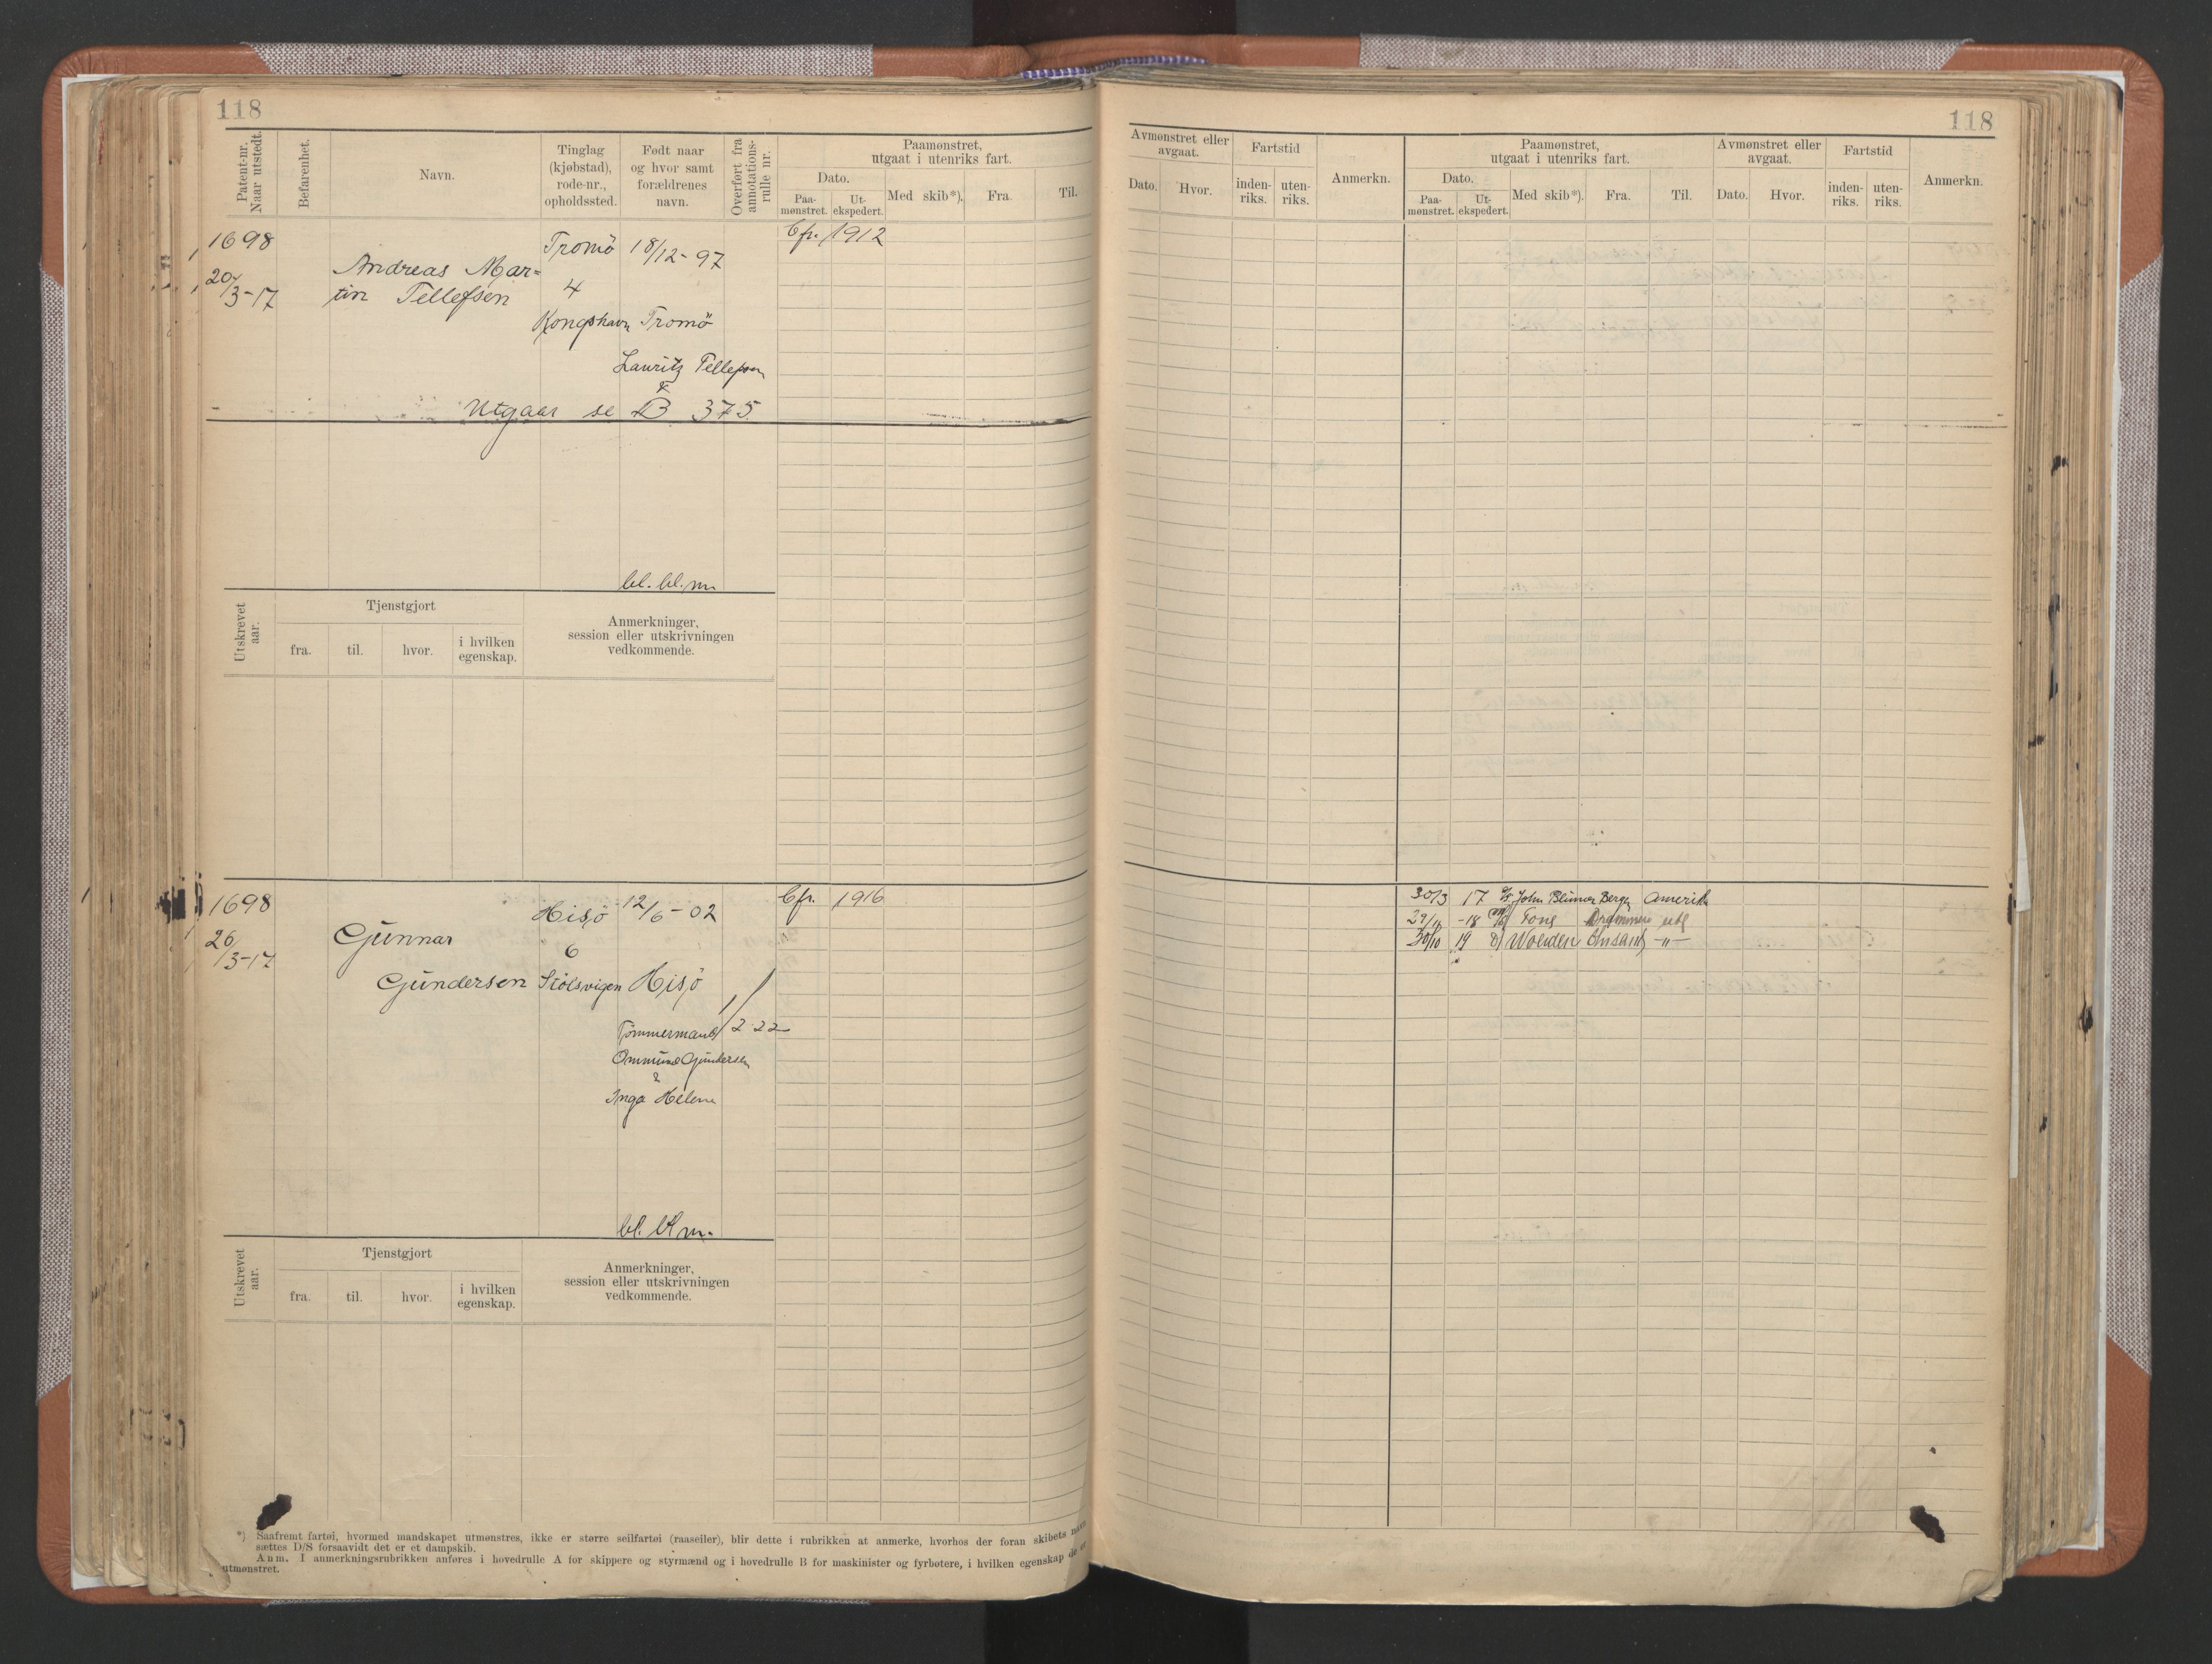 118
118
Patent-nr.
Naar utstedt.
Befarenhet.
Navn.
Tinglag
(kjøbstad),
rode-nr.,
opholdssted.
Født naar
og hvor samt
forældrenes
navn.
Overført fra
annotations-
rulle nr.
Paamønstret,
utgaat i utenriks fart.
Dato.
Paa-
mønstret.
Ut-
ekspedert.
Med skib*).
Fra.
Til.
Avmønstret eller
avgaat.
Dato.
Hvor.
Fartstid
inden-
riks.
uten-
riks.
Anmerkn.
Paamønstret,
utgaat i utenriks fart.
Dato.
Paa-
mønstret.
Ut-
ekspedert.
Med skib*).
Fra.
Til.
Avmønstret eller
avgaat.
Dato.
Hvor.
Fartstid
inden-
riks.
uten-
riks.
Anmerkn.
1698
20/3-17
Andreas Mar=
tin Tellefsen
Tromö
4
Kongshavn
18/12-97
Tromö
Lauritz Tellefsen
&
Utgaar se B 375
Cfr. 1912
bl. bl. m.
Utskrevet
aar.
Tjenstgjort
fra.
til.
hvor.
i hvilken
egenskap.
Anmerkninger,
session eller utskrivningen
vedkommende.
1698
26/3-17
Gunnar
Gundersen
Hisö
6
Stölsvigen
12/6-02
Hisö
Tömmermand 1/2 22
Ommund Gundersen
&
Inga Helene
Cfr. 1916
30/3 17 John Blumer Bergen Amerik
29/11 -18 Tove Drammen utl
30/10 19 D/ Wolden Chrsand -"-
bl. bl. m.
Utskrevet
aar.
Tjenstgjort
fra.
til.
hvor.
i hvilken
egenskap.
Anmerkninger,
session eller utskrivningen
vedkommende.
*) Saafremt fartøi, hvormed mandskapet utmønstres, ikke er større seilfartøi (raaseiler), blir dette i rubrikken at anmerke, hvorhos der foran skibets navn
sættes D/S forsaavidt det er et dampskib.
Anm. I anmerkningsrubrikken anføres i hovedrulle A for skippere og styrmænd og i hovedrulle B for maskinister og fyrbøtere, i hvilken egenskap de er
utmønstret.